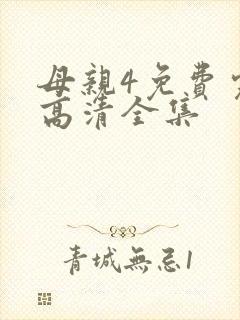 母親4免費
高清全集
青城無忌1